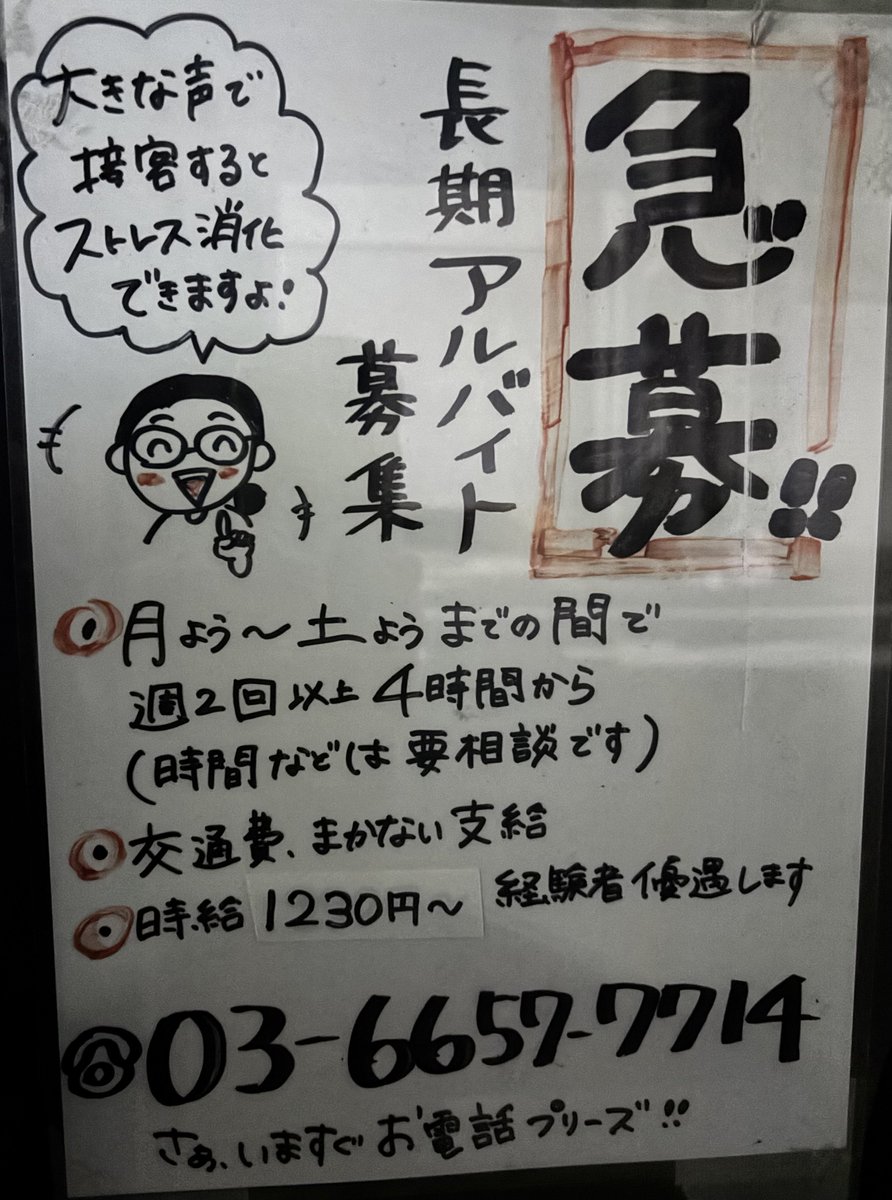 急募!!
長期アルバイト
募集
大きな声で
接客すると
ストレス消化
できますよ!
月よう〜土ようまでの間で
週2回以上 4時間から
(時間などは要相談です)
交通費、まかない支給
時給 1230円〜 経験者優遇します
03-6657-7714
さぁ、いますぐお電話プリーズ!!